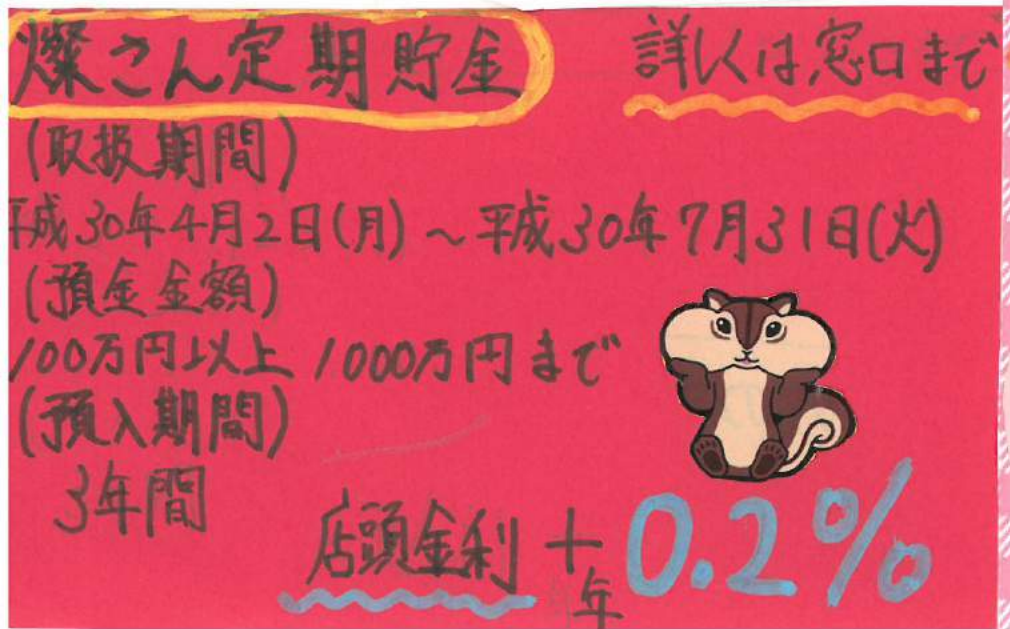 燦さん定期貯金
詳しくは、窓口まで
(取扱期間)
平成30年4月2日(月)～平成30年7月31日(火)
(預金金額)
100万円以上 1000万円まで
(預入期間)
3年間
店頭金利 + 年 0.2%